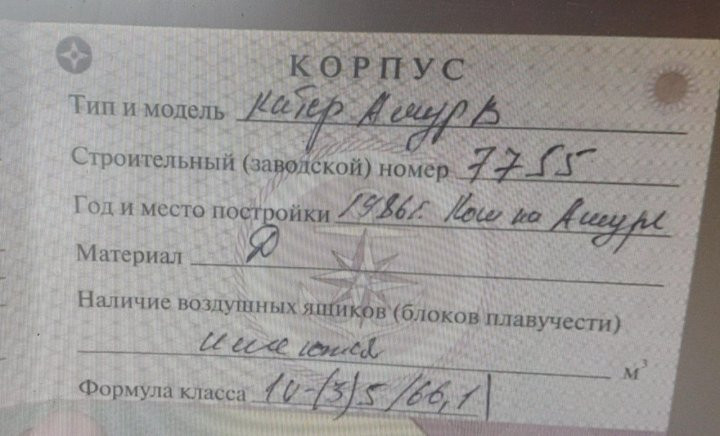 КОРПУС
Тип и модель катер Амур В
Строительный (заводской) номер 7755
Год и место постройки 1986г. Ком на Амуре
Материал Д
Наличие воздушных ящиков (блоков плавучести)
имеются м³
Формула класса IV-(3)5/66,1